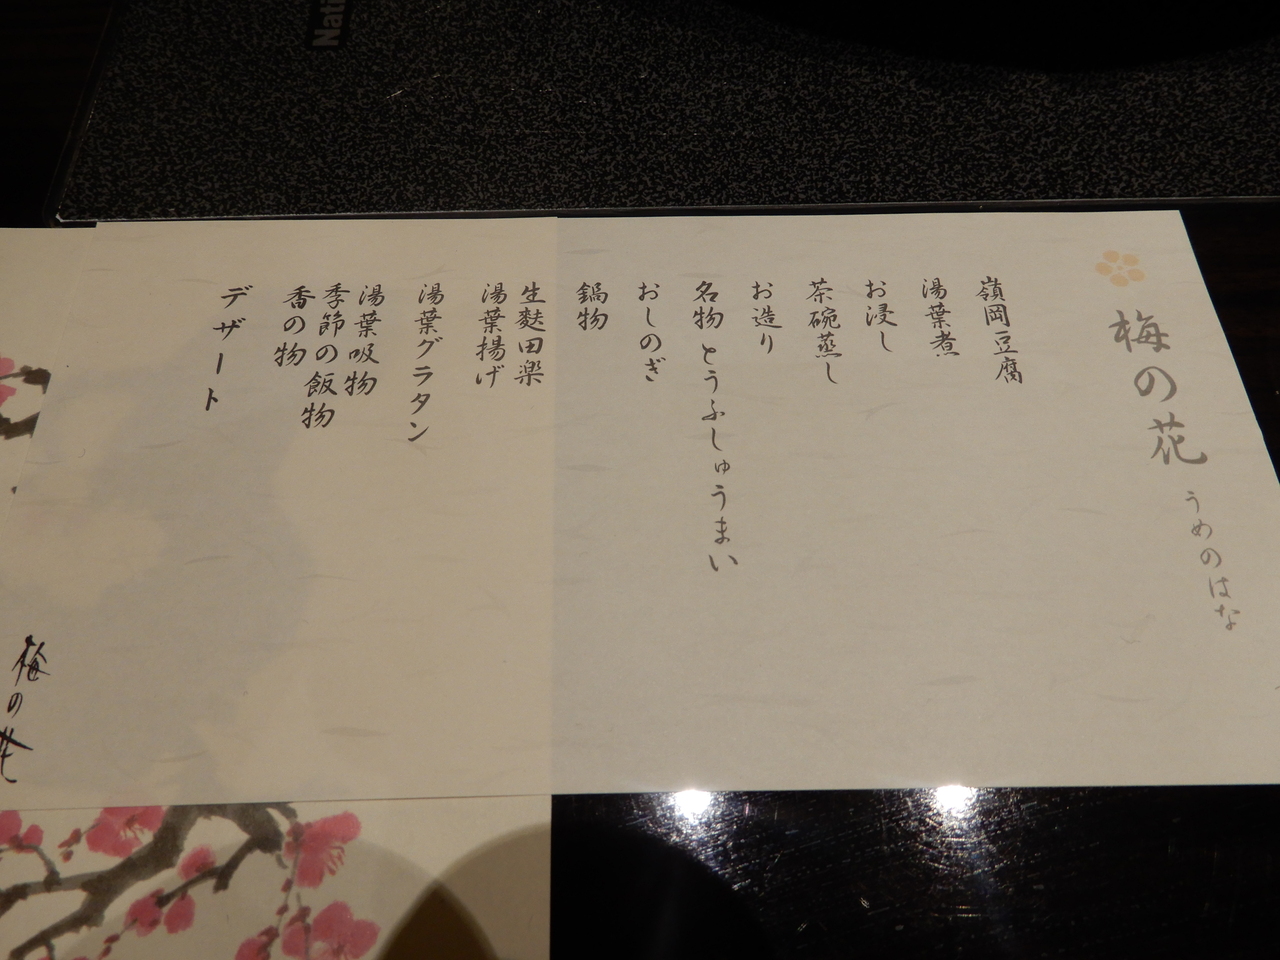 梅の花 うめのはな
嶺岡豆腐
湯葉煮
お浸し
茶碗蒸し
お造り
名物 とうふしゅうまい
おしのぎ
鍋物
生麩田楽
湯葉揚げ
湯葉グラタン
湯葉吸物
季節の飯物
香の物
デザート
梅の花
Nati